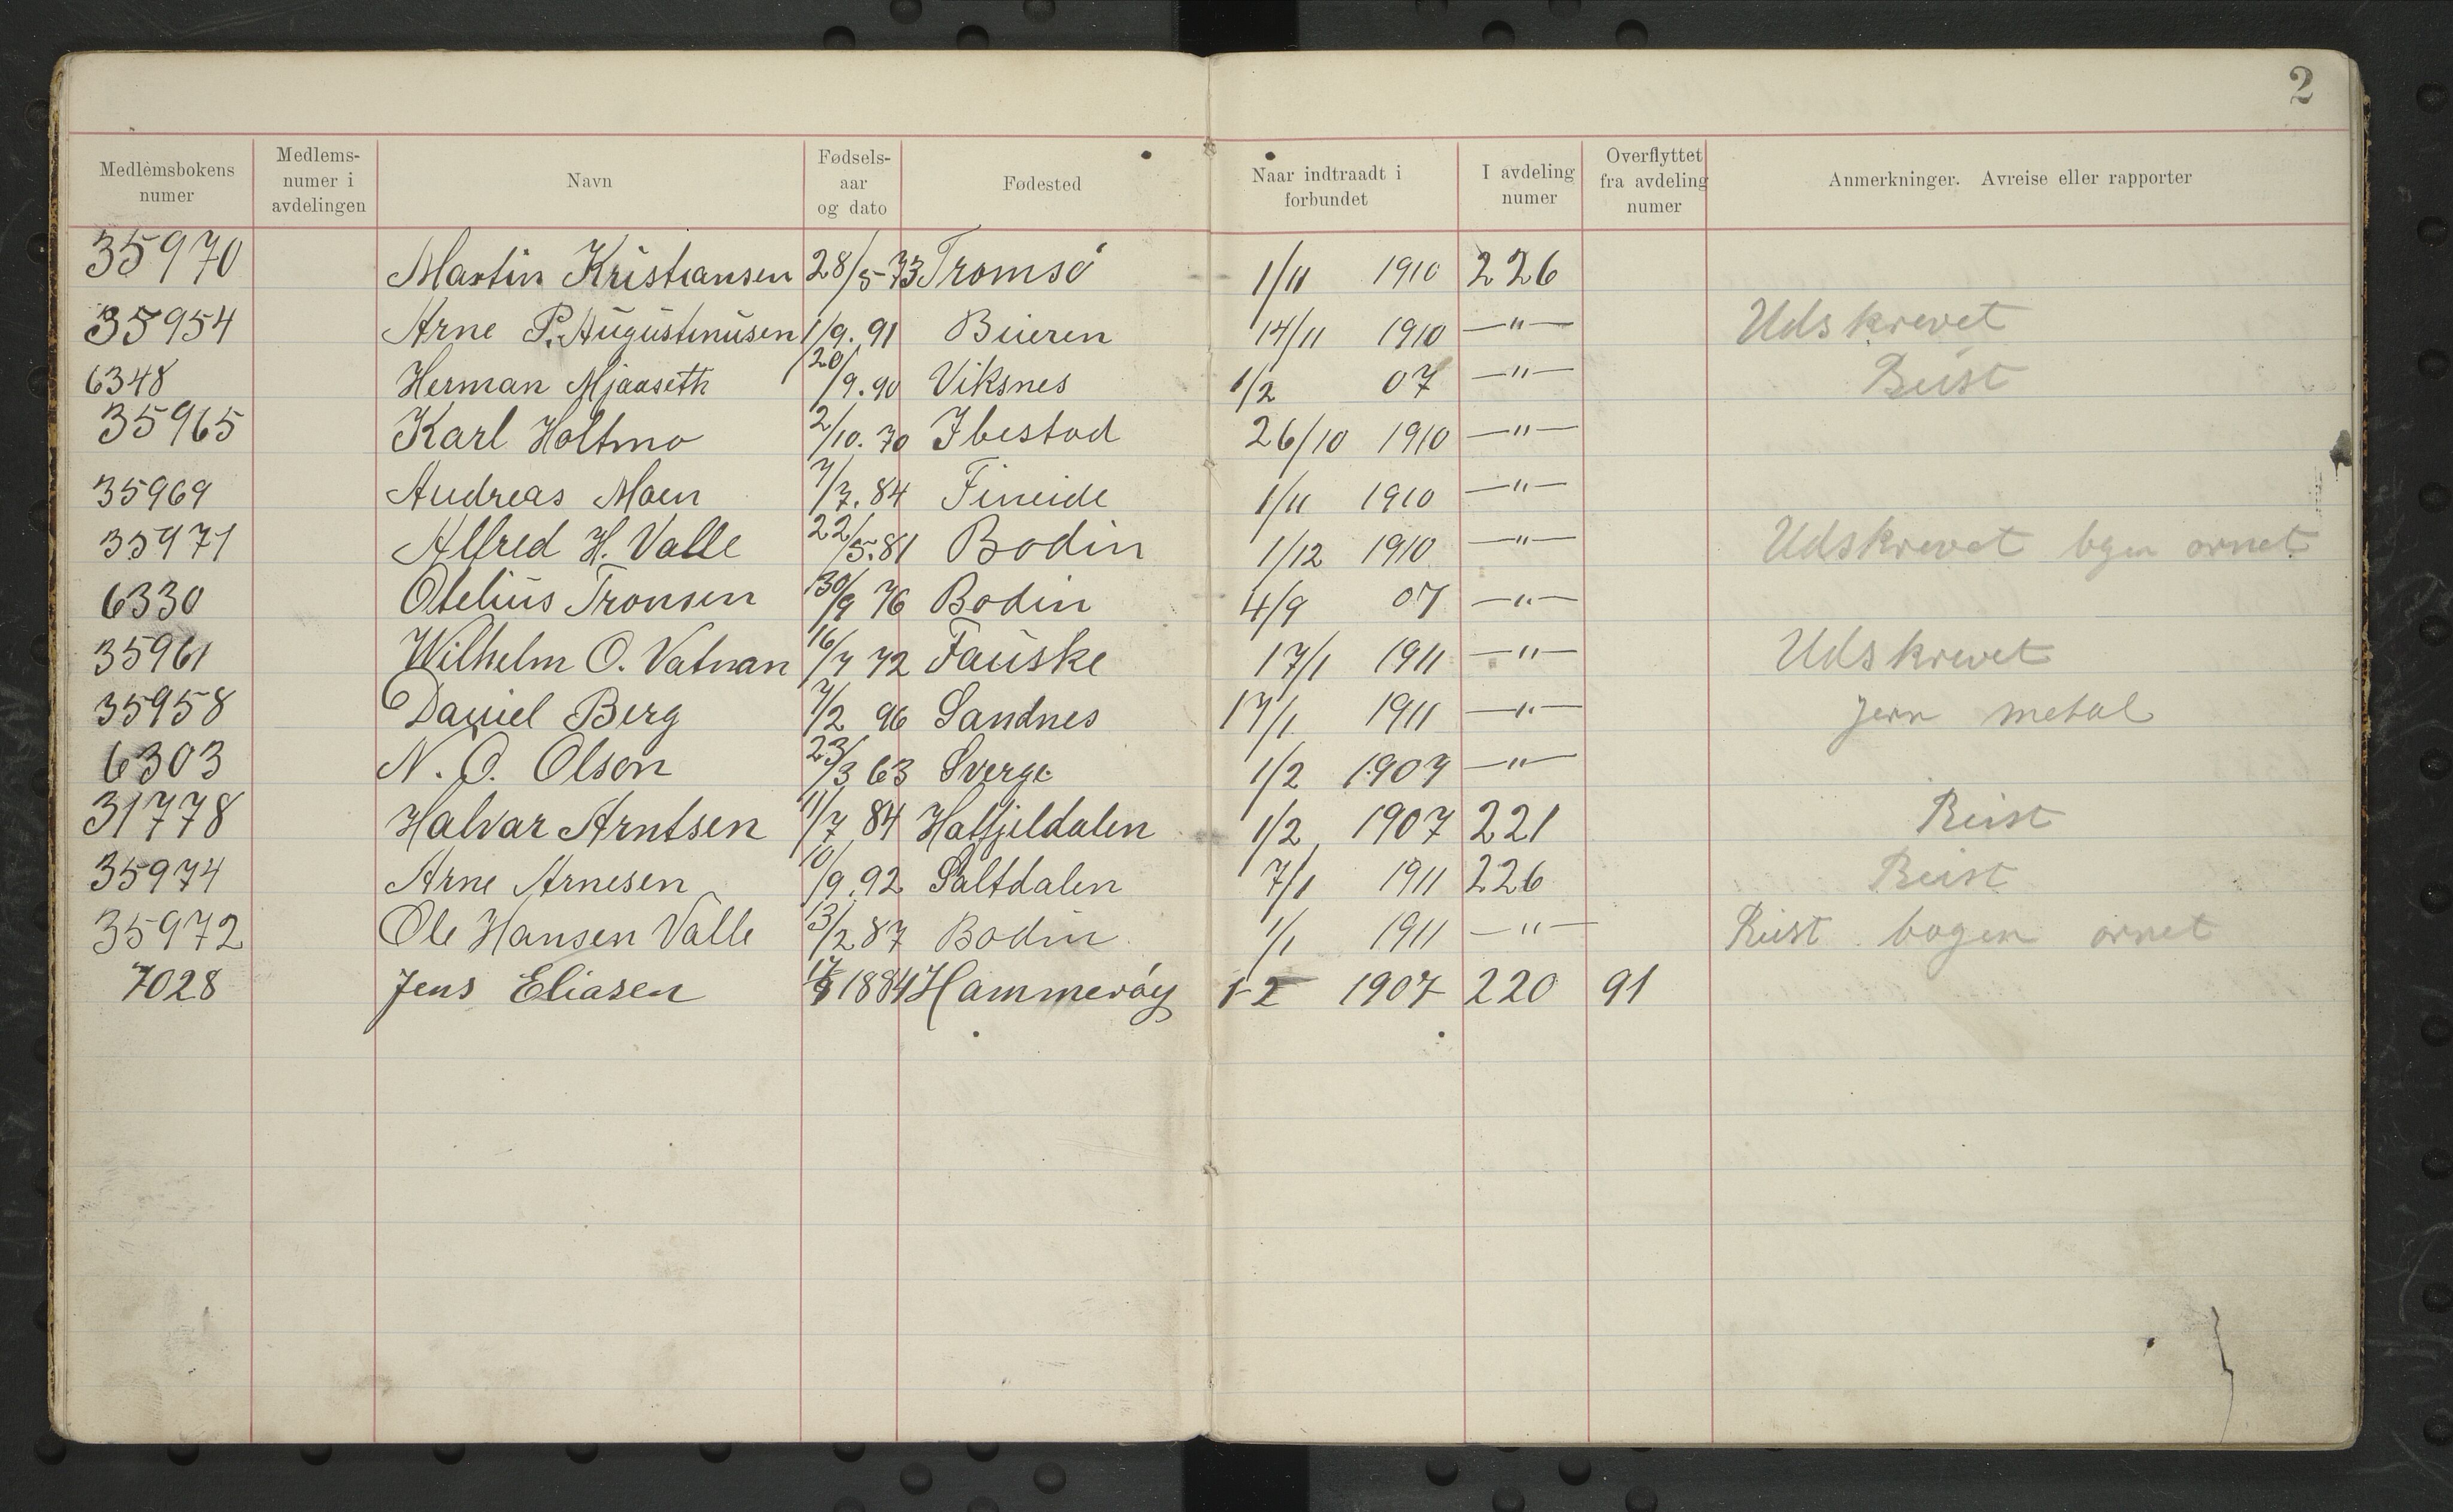 2
Medlemsbokens numer
Medlems-numer i avdelingen
Navn
Fødsels-aar og dato
Fødested
Naar indtraadt i forbundet
I avdeling numer
Overflyttet fra avdeling numer
Anmerkninger. Avreise eller rapporter
35970 Martin Kristiansen 28/5-73 Tromsö 1/11 1910 226
35954 Arne P. Augustinusen 1/9. 91 Bueren 14/11 1910 —"— Udskrevet
6348 Herman Mjaaseth 20/9. 90 Viksnes 1/2 07 —"— Reist
35965 Karl Holtmo 2/10. 70 Ibestad 26/10 1910 —"—
35969 Andreas Moen 7/7. 84 Fineide 1/11 1910 —"—
35971 Alfred H. Valle 22/5. 81 Bodin 1/12 1910 —"— Udskrevet bgen ornet
6330 Otelius Tronsen 30/9 76 Bodin 4/9 07 —"—
35961 Wilhelm O. Vatnan 16/7 72 Fauske 17/1 1911 —"— Udskrevet
35958 Daniel Berg 7/2 96 Sandnes 17/1 1911 —"— Jern metal
6303 N. O. Olson 23/3 63 Sverge 1/2 1907 —"—
31778 Halvar Arntsen 11/7 84 Hatfjeldalen 1/2 1907 221 Reist
35974 Arne Arnesen 10/9. 92 Saltdalen 7/1 1911 226 Reist
35972 Ole Hansen Valle 13/2 87 Bodin 1/1 1911 —"— Reist bogen ornet
7028 Jens Eliasen 1884 Hammeröy 1-2 1907 220 91